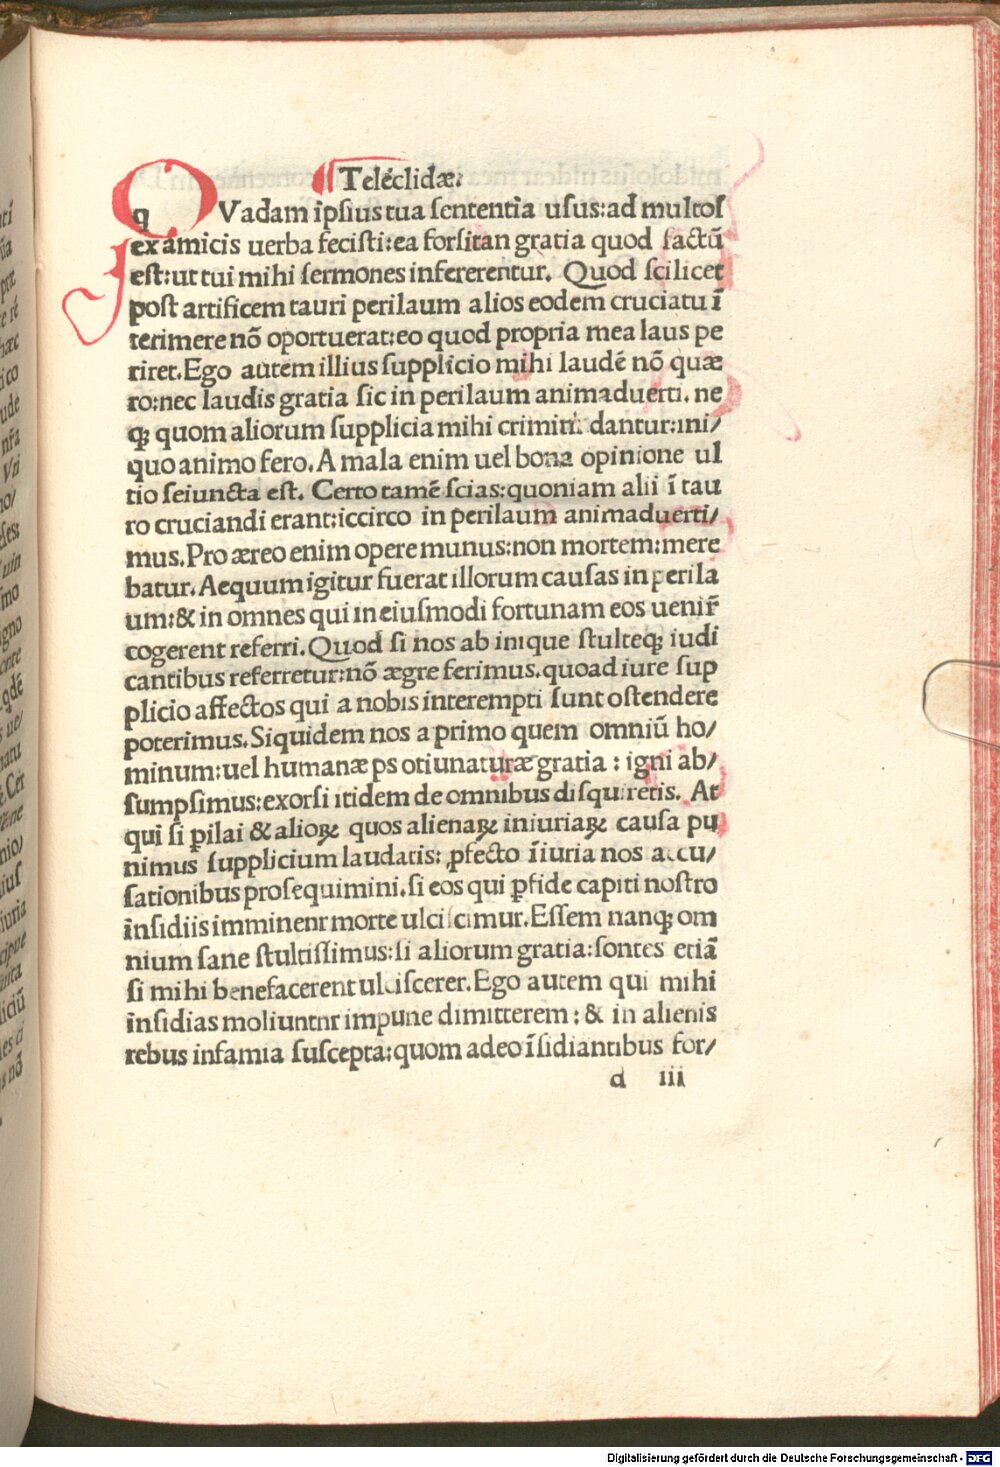 Teleclidæ.
QVadam ipsius tua sententia usus:ad multos
ex amicis uerba fecisti:ea forsitan gratia quod factū
est:ut tui mihi sermones infererentur. Quod scilicet
post artificem tauri perilaum alios eodem cruciatu ī
terimere nō oportuerat:eo quod propria mea laus pe
riret.Ego autem illius supplicio mihi laudē nō quæ
ro:nec laudis gratia sic in perilaum animaduerti. ne
qꝫ quom aliorum supplicia mihi crimini dantur:ini/
quo animo fero.A mala enim uel bona opinione ul
tio seiuncta est. Certo tamē scias:quoniam alii ī tau
ro cruciandi erant:iccirco in perilaum animaduerti/
mus.Pro æreo enim opere munus:non mortem:mere
batur.Aequum igitur fuerat illorum causas in perila
um:& in omnes qui in eiusmodi fortunam eos uenir̄
cogerent referri.Quod si nos ab inique stulteqꝫ iudi
cantibus referretur:nō ægre ferimus.quoad iure sup
plicio affectos qui a nobis interempti sunt ostendere
poterimus.Siquidem nos a primo quem omniū ho/
minum:uel humanæ ps otiunaturæ gratia : igni ab/
sumpsimus:exorsi itidem de omnibus disquiretis. At
qui si pilai & alioꝝ quos alienaꝝ iniuriaꝝ causa pu
nimus supplicium laudatis: ꝓfecto īiuria nos accu/
sationibus prosequimini.si eos qui ꝑfide capiti nostro
insidiis imminent morte ulciscimur.Essem nanqꝫ om
nium sane stultissimus:si aliorum gratia:sontes etiā
si mihi benefacerent ulciscerer.Ego autem qui mihi
insidias moliuntnr impune dimitterem : & in alienis
rebus infamia suscepta:quom adeo īsidiantibus for/
d iii
Digitalisierung gefördert durch die Deutsche Forschungsgemeinschaft - DFG